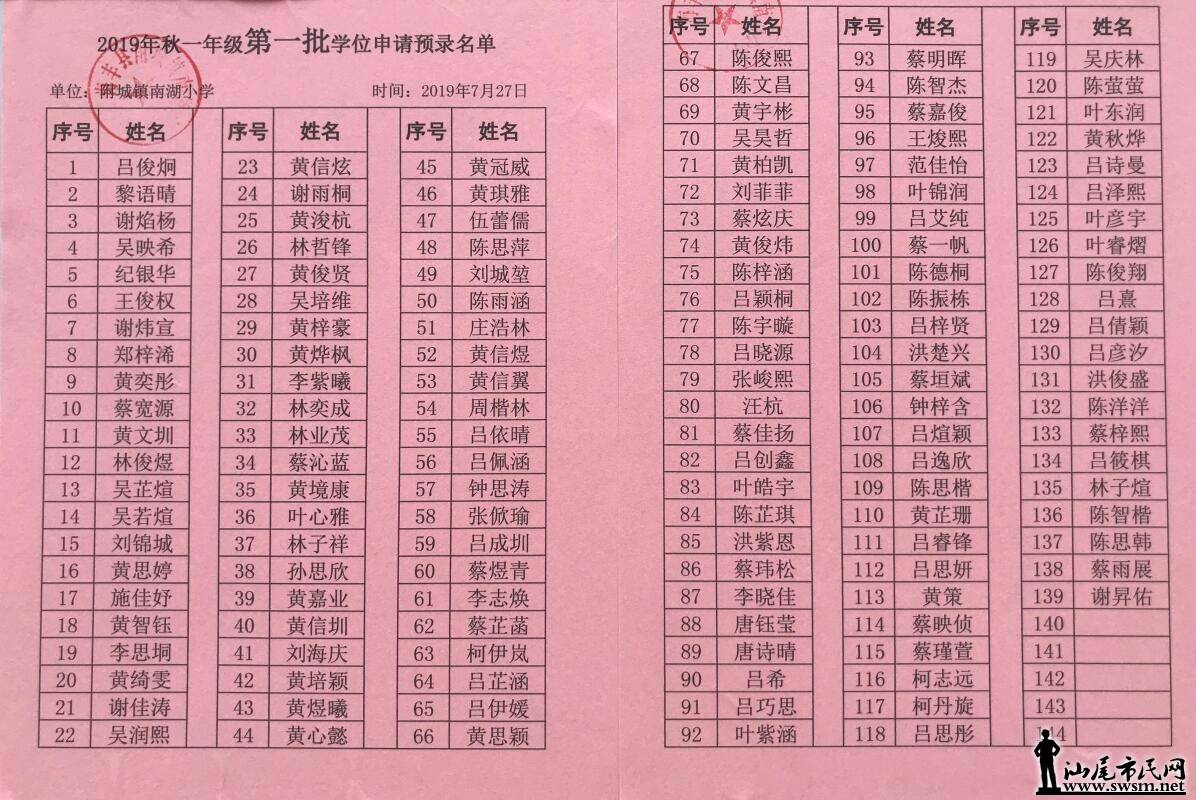 2019年秋一年级第一批学位申请预录名单
单位：附城镇南湖小学 时间：2019年7月27日
序号 姓名 序号 姓名 序号 姓名
1 吕俊炯 23 黄信炫 45 黄冠威
2 黎语晴 24 谢雨桐 46 黄琪雅
3 谢焰杨 25 黄浚杭 47 伍蕾儒
4 吴映希 26 林哲锋 48 陈思萍
5 纪银华 27 黄俊贤 49 刘城堃
6 王俊权 28 吴培维 50 陈雨涵
7 谢炜宣 29 黄梓豪 51 庄浩林
8 郑梓浠 30 黄烨枫 52 黄信煜
9 黄奕彤 31 李紫曦 53 黄信翼
10 蔡宽源 32 林奕成 54 周楷林
11 黄文圳 33 林业茂 55 吕依晴
12 林俊煜 34 蔡沁蓝 56 吕佩涵
13 吴芷煊 35 黄境康 57 钟思涛
14 吴若煊 36 叶心雅 58 张倣瑜
15 刘锦城 37 林子祥 59 吕成圳
16 黄思婷 38 孙思欣 60 蔡煜青
17 施佳妤 39 黄嘉业 61 李志焕
18 黄智钰 40 黄信圳 62 蔡芷菡
19 李思垌 41 刘海庆 63 柯伊岚
20 黄绮雯 42 黄培颖 64 吕芷涵
21 谢佳涛 43 黄煜曦 65 吕伊媛
22 吴润熙 44 黄心懿 66 黄思颖
序号 姓名 序号 姓名 序号 姓名
67 陈俊熙 93 蔡明晖 119 吴庆林
68 陈文昌 94 陈智杰 120 陈萤萤
69 黄宇彬 95 蔡嘉俊 121 叶东润
70 吴昊哲 96 王焌熙 122 黄秋烨
71 黄柏凯 97 范佳怡 123 吕诗曼
72 刘菲菲 98 叶锦润 124 吕泽熙
73 蔡炫庆 99 吕艾纯 125 叶彦宇
74 黄俊炜 100 蔡一帆 126 叶睿熠
75 陈梓涵 101 陈德桐 127 陈俊翔
76 吕颖桐 102 陈振栋 128 吕熹
77 陈宇暶 103 吕梓贤 129 吕倩颖
78 吕晓源 104 洪楚兴 130 吕彦汐
79 张峻熙 105 蔡垣斌 131 洪俊盛
80 汪杭 106 钟梓含 132 陈洋洋
81 蔡佳扬 107 吕煊颖 133 蔡梓熙
82 吕创鑫 108 吕逸欣 134 吕筱棋
83 叶皓宇 109 陈思楷 135 林子煊
84 陈芷琪 110 黄芷珊 136 陈智楷
85 洪紫恩 111 吕睿锋 137 陈思韩
86 蔡玮松 112 吕思妍 138 蔡雨展
87 李晓佳 113 黄策 139 谢昇佑
88 唐钰莹 114 蔡映侦 140
89 唐诗晴 115 蔡瑾萱 141
90 吕希 116 柯志远 142
91 吕巧思 117 柯丹旋 143
92 叶紫涵 118 吕思彤 144
汕尾市民网
www.swsm.net